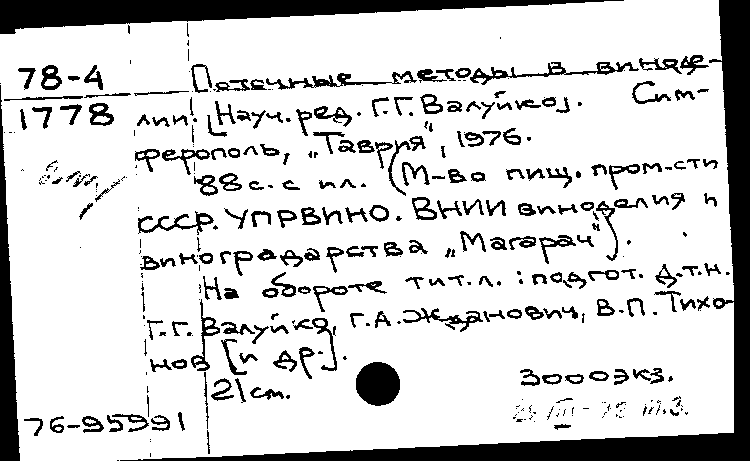 78-4 Поточные методы в виноде-
1778 лии. [Науч. ред. Г.Г. Валуйко]. Сим-
ферополь, „Таврия", 1976.
88 с. с ил. (М-во пищ. пром-сти
СССР. УПРВИНО. ВНИИ виноделия и
виноградарства „Магарач").
На обороте тит. л. : подгот. д.т.н.
Г.Г. Валуйко, Г.А. Жданович, В.П. Тихо-
нов [и др.].
21 см. 3000 экз.
76-95991